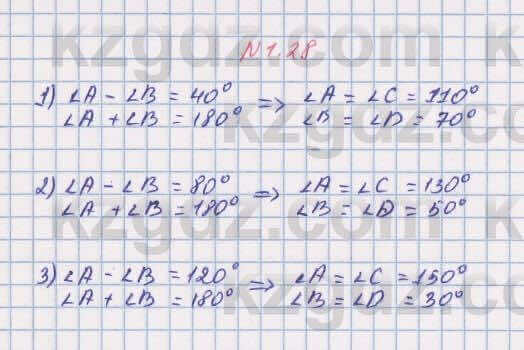 № 1.28
1) ∠A - ∠B = 40° => ∠A = ∠C = 110°
∠A + ∠B = 180° ∠B = ∠D = 70°
2) ∠A - ∠B = 80° => ∠A = ∠C = 130°
∠A + ∠B = 180° ∠B = ∠D = 50°
3) ∠A - ∠B = 120° => ∠A = ∠C = 150°
∠A + ∠B = 180° ∠B = ∠D = 30°
kzgdz.com